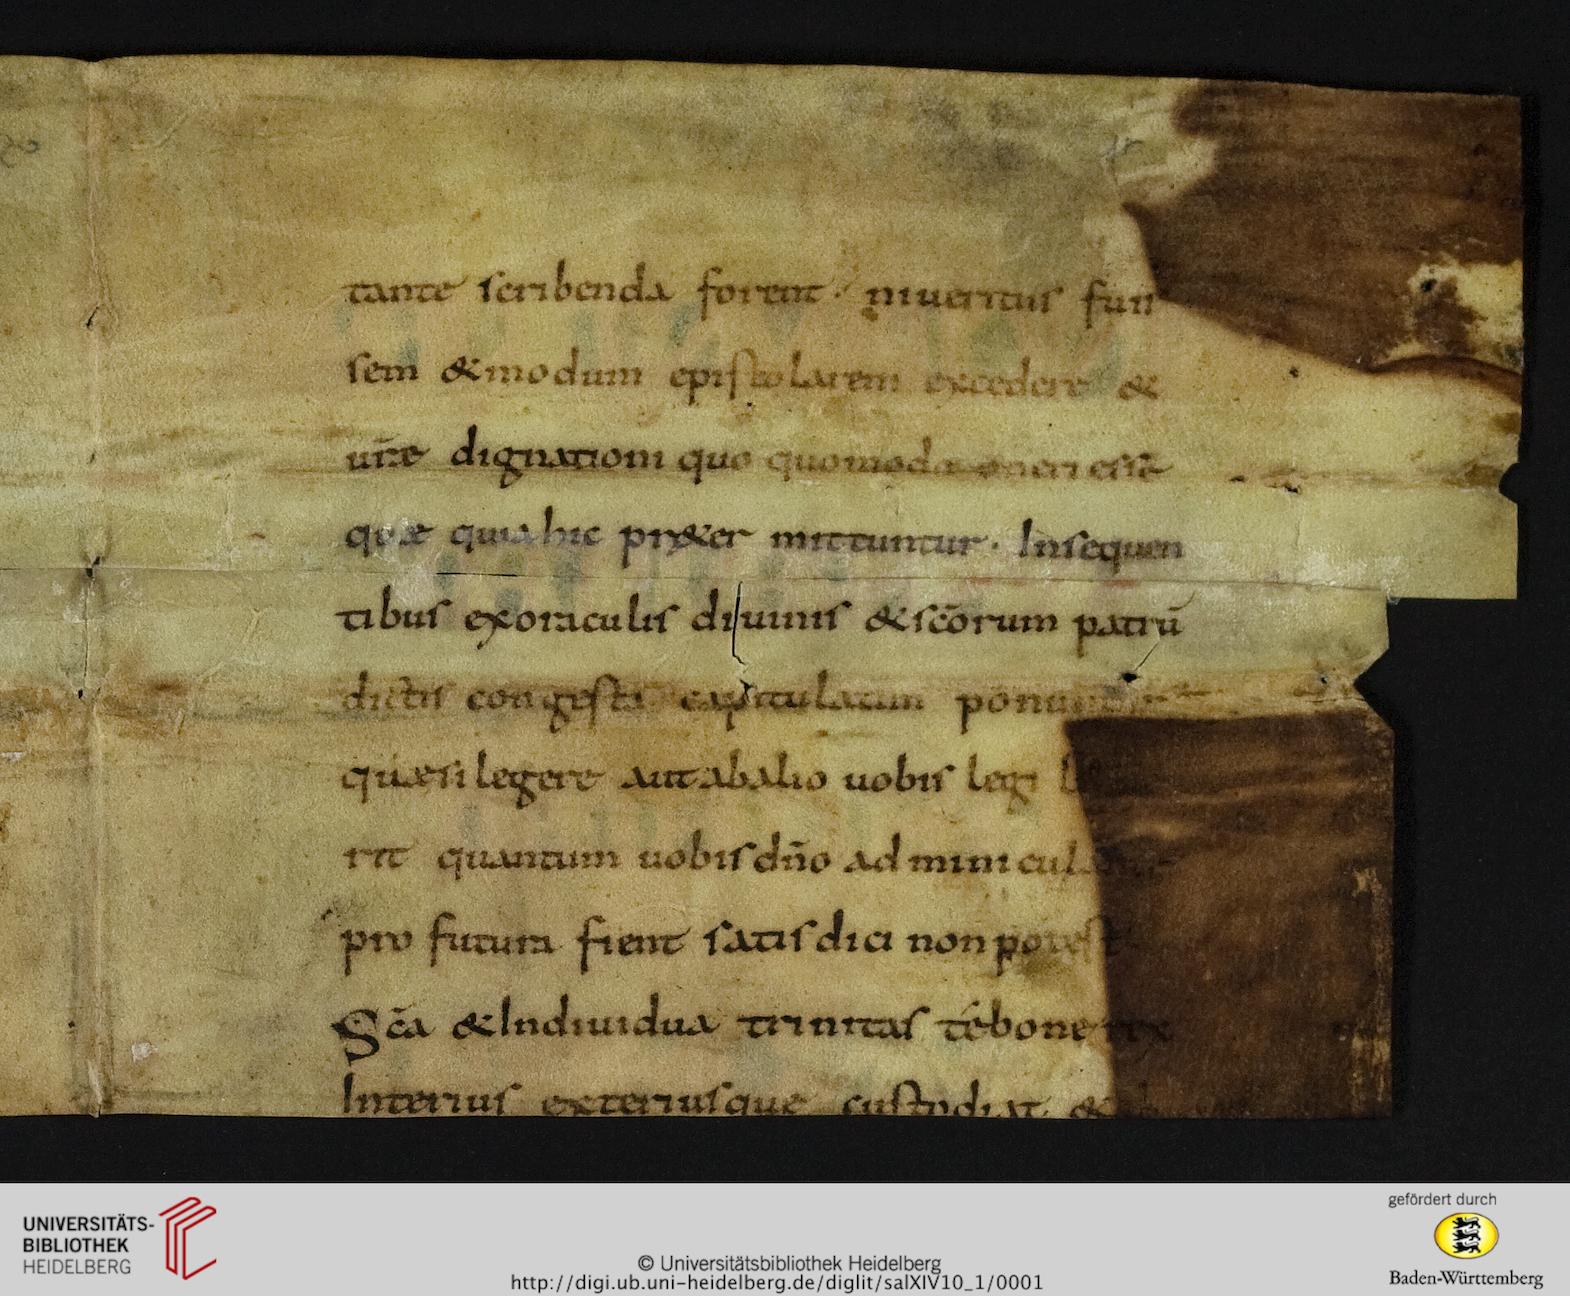 tante scribenda forent · ni ueritus fuis
sem & modum epistolarem excedere &
ur̄ae dignationi quo quomodo oneri esse
quae quia hic pr&er mittuntur · Insequen
tibus ex oraculis diuinis & sc̄orum patrū
dictis congesta capitulatim
quae si legere aut ab alio uobis legi
rit quantum uobis dn̄o adminicul
pro futura fient satis dici non potest
Sc̄a & Indiuidua trinitas té bone rex
Interius exteriusque custodiat &
UNIVERSITÄTS-
BIBLIOTHEK
HEIDELBERG
© Universitätsbibliothek Heidelberg
http://digi.ub.uni-heidelberg.de/diglit/salXIV10_1/0001
gefördert durch
Baden-Württemberg